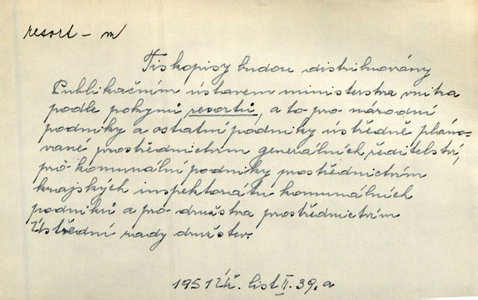 resort - m
Tiskopisy budou distribuovány
Publikačním ústavem ministerstva vnitra
podle pokynů resortů, a to pro národní
podniky a ostatní podniky ústředně pláno-
vané prostřednictvím generálních ředitelství,
pro komunální podniky prostřednictvím
krajských inspektorátů komunálních
podniků a pro družstva prostřednictvím
Ústřední rady družstev.
1951 Úř. list II. 39. a